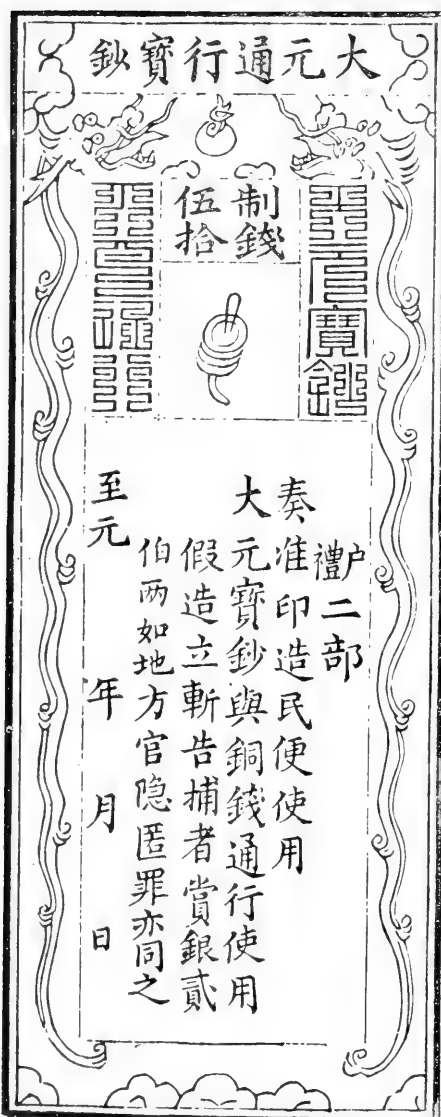 大元通行寶鈔
制錢
伍拾
户禮二部
奏准印造民便使用
大元寶鈔與銅錢通行使用
假造立斬告捕者賞銀貳
伯两如地方官隐匿罪亦同之
至元 年 月 日